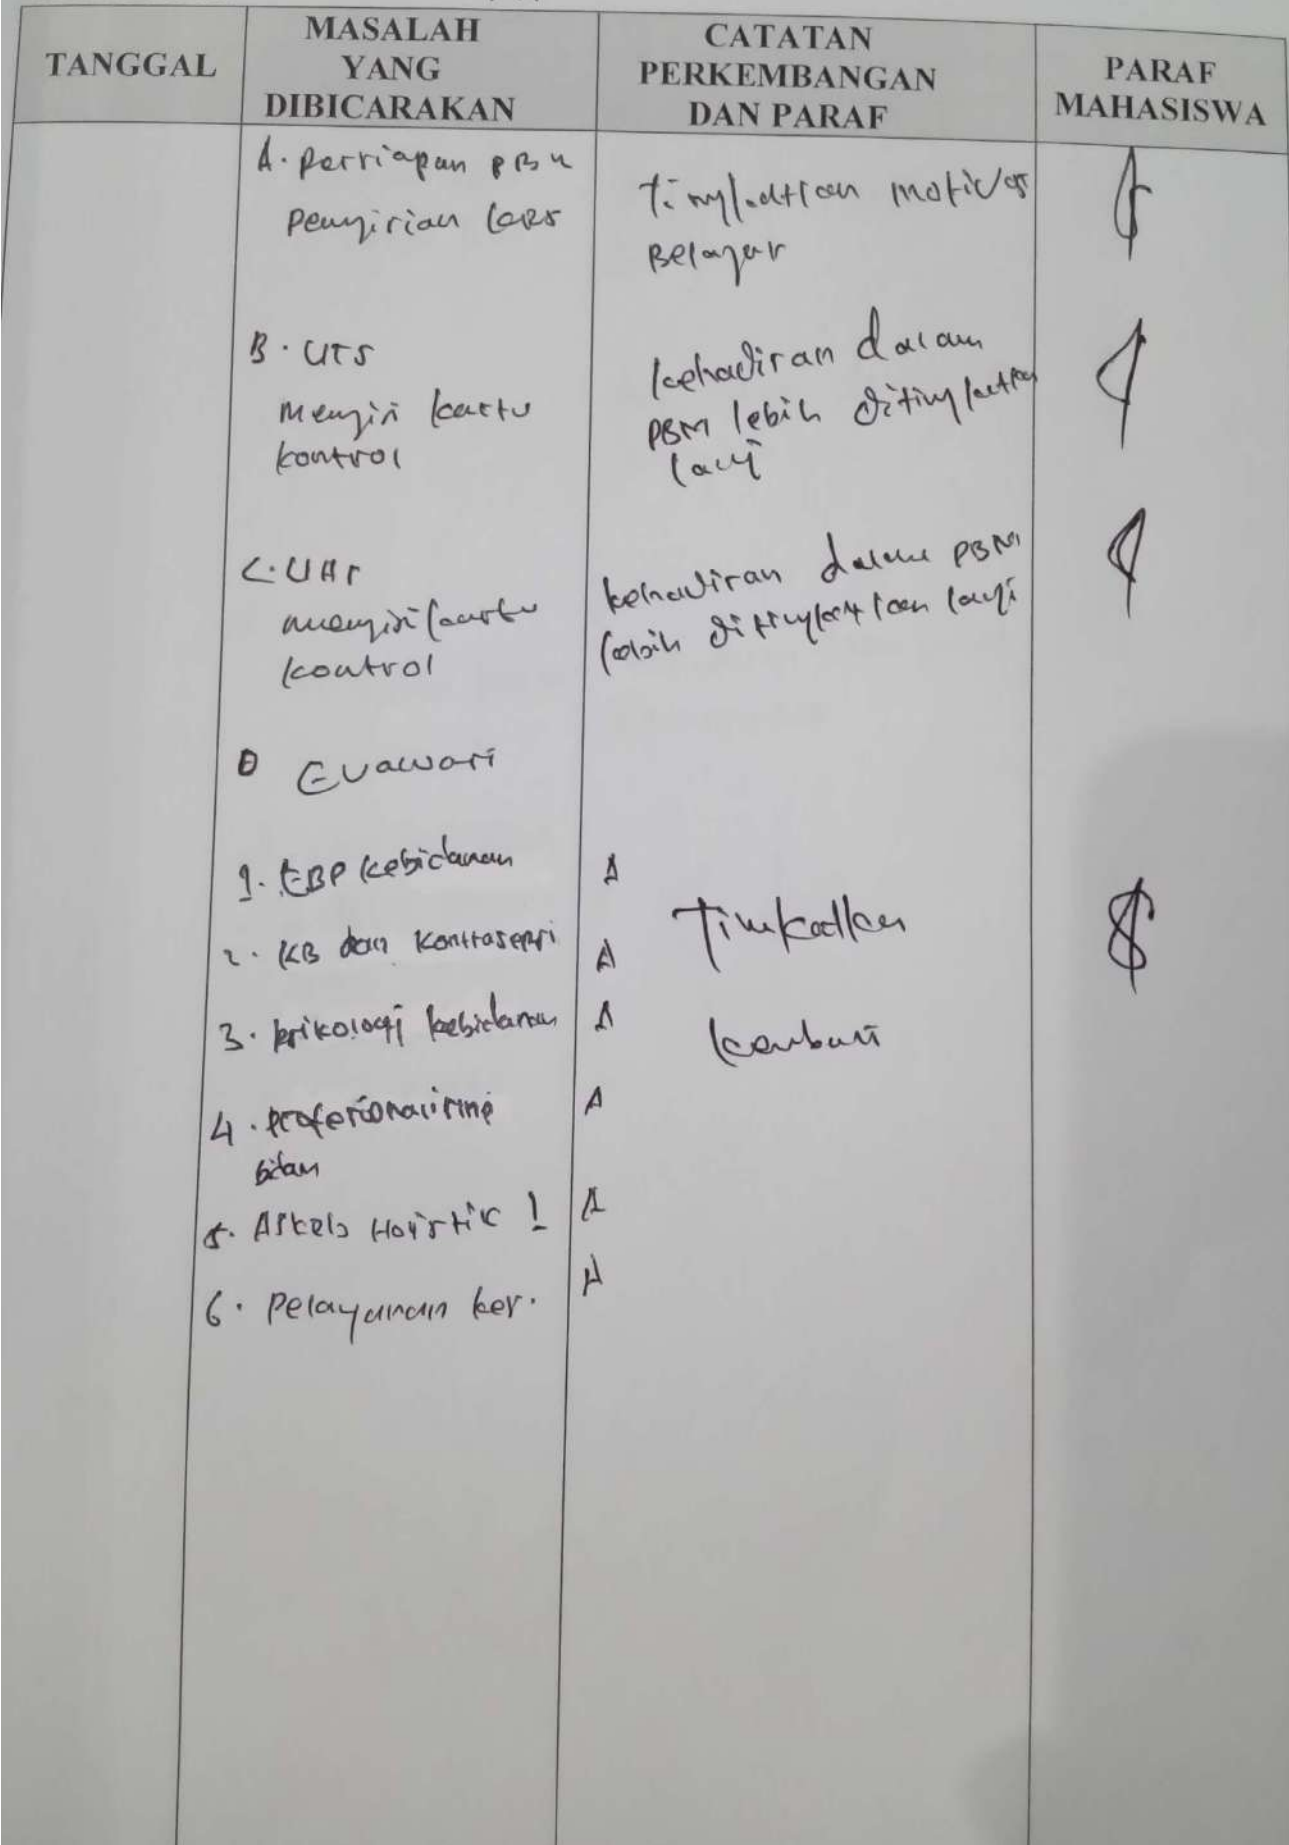 TANGGAL
MASALAH
YANG
DIBICARAKAN
CATATAN
PERKEMBANGAN
DAN PARAF
PARAF
MAHASISWA
A. Persiapan PBM
Pengisian KRS
Tingkatkan motivasi
Belajar
B. UTS
Mengisi kartu
kontrol
kehadiran dalam
PBM lebih ditingkatkan
lagi
C. UAS
mengisi kartu
kontrol
kehadiran dalam PBM
lebih ditingkatkan lagi
D Evawasi
1. EBP kebidanan A
2. KB dan Kontrasepsi A
3. Psikologi kebidanan A
4. Profesionalisme A
bidan
5. Askeb Holistik I A
6. Pelayanan kes. A
Tinkatkan
kembali